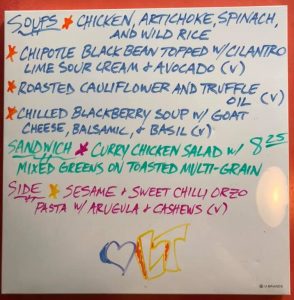 SOUPS ★ CHICKEN, ARTICHOKE, SPINACH,
AND WILD RICE
★ CHIPOTLE BLACK BEAN TOPPED W/ CILANTRO
LIME SOUR CREAM & AVOCADO (V)
★ ROASTED CAULIFLOWER AND TRUFFLE
OIL (V)
★ CHILLED BLACKBERRY SOUP W/ GOAT
CHEESE, BALSAMIC, & BASIL (V)
SANDWICH ★ CURRY CHICKEN SALAD W/ 8.25
MIXED GREENS ON TOASTED MULTI-GRAIN
SIDE ★ SESAME & SWEET CHILLI ORZO
PASTA W/ ARUGULA & CASHEWS (V)
LT
U BRANDS